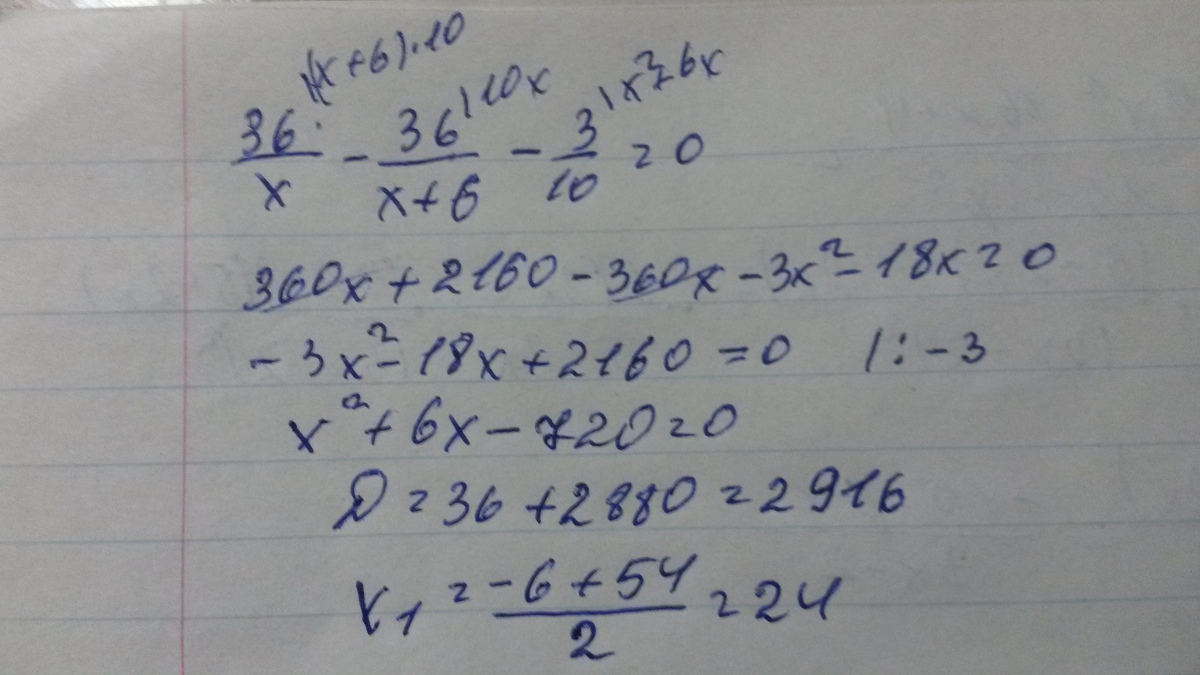 36/x |(x+6)·10 - 36/(x+6) |10x - 3/10 |x²+6x = 0
360x + 2160 - 360x - 3x² - 18x = 0
- 3x² - 18x + 2160 = 0 |: -3
x² + 6x - 720 = 0
D = 36 + 2880 = 2916
x₁ = (-6 + 54)/2 = 24